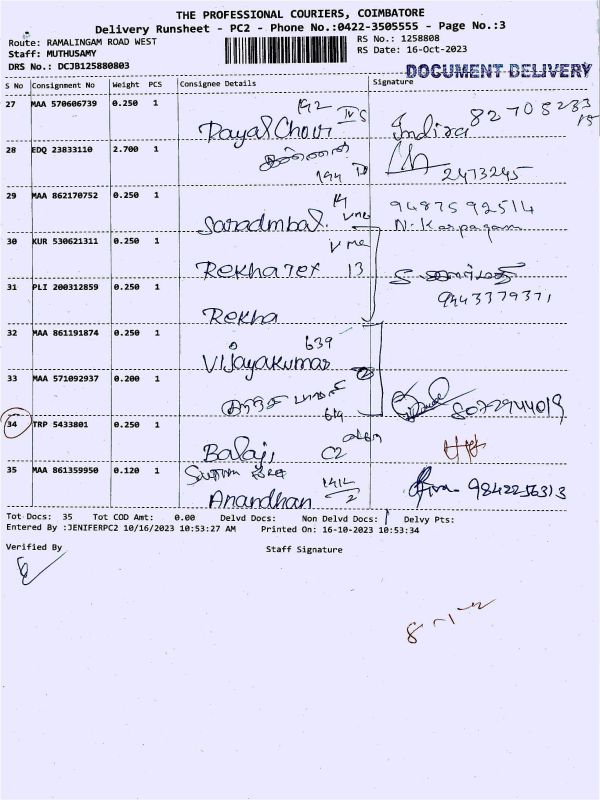 THE PROFESSIONAL COURIERS, COIMBATORE
Delivery Runsheet - PC2 - Phone No.:0422-3505555 - Page No.:3
Route: RAMALINGAM ROAD WEST
RS No.: 1258808
Staff: MUTHUSAMY
RS Date: 16-Oct-2023
DRS No.: DCJB125880803
DOCUMENT DELIVERY
S No Consignment No Weight PCS Consignee Details Signature
27 MAA 570606739 0.250 1
192
IV S
Dayal Chour
Indira 82705233
15
28 EDQ 23833110 2.700 1
194 IV
2473245
29 MAA 862170752 0.250 1
Saradmbal.
9487592514
N. Karpagam
30 KUR 530621311 0.250 1
Rekha Tex 13
31 PLI 200312859 0.250 1
Rekha
9443379371
32 MAA 861191874 0.250 1
639
Vijayakumar
33 MAA 571092937 0.200 1
619
8072944019
34 TRP 5433801 0.250 1
Balaji C2
35 MAA 861359950 0.120 1
Anandhan 1414/2
9842256313
Tot Docs: 35 Tot COD Amt: 0.00 Delvd Docs: Non Delvd Docs: Delvy Pts:
Entered By :JENIFERPC2 10/16/2023 10:53:27 AM Printed On: 16-10-2023 10:53:34
Verified By Staff Signature
8-1-2